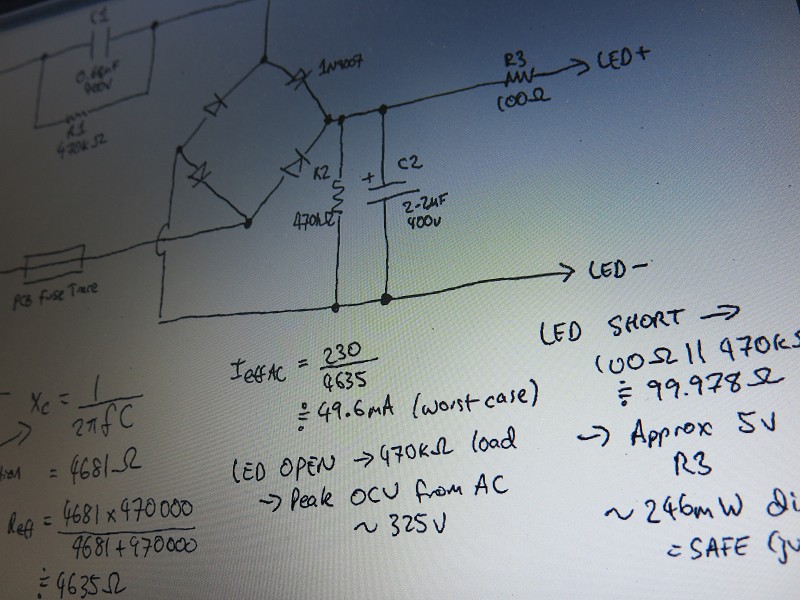 C1
400V
R1
470kΩ
1N4007
R3
100Ω
LED+
R2
470kΩ
+
C2
2.2uF
400V
PCB Fuse Trace
LED-
Xc = 1
2πfC
= 4681Ω
Reff = 4681 x 470000
4681 + 470000
≑ 4635Ω
IeffAC = 230
4635
≑ 49.6mA (worst case)
LED OPEN → 470kΩ load
→ Peak OCV from AC
~ 325V
LED SHORT →
100Ω || 470kΩ
≑ 99.978Ω
→ Approx 5V
R3
~ 246mW
= SAFE